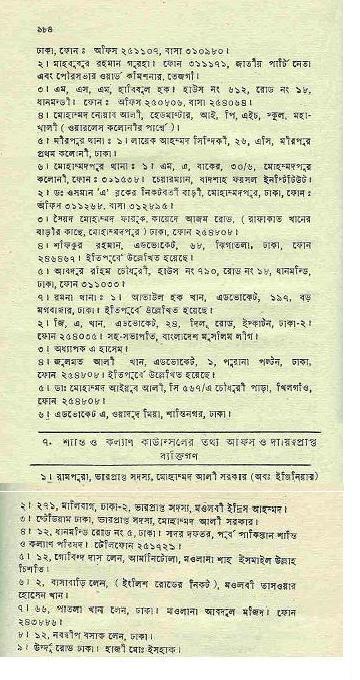 ১৮৪
ঢাকা, ফোন : অফিস ২৫১১০৭, বাসা ৩১০৯৮০।
২। মাহবুবুর রহমান গুরহা। ফোন ৩১১১৭১, জাতীয় পার্টি নেতা
এবং পৌরসভার ওয়ার্ড কমিশনার, তেজগাঁ।
৩। এম, এস, এম, হাবিবুল হক। হাউস নং ৬১২, রোড নং ১৮,
ধানমন্ডী। ফোন : অফিস ২৫০৮০৬, বাসা ২৫৪০৬৪।
৪। মোহাম্মদ নোয়াব আলী, হেডমাস্টার, আই, পি, এইচ, স্কুল, মহা-
খালী (ওয়ারলেস কলোনীর পার্শ্বে)।
৫। মীরপুর থানা : ১। লায়েক আহম্মদ সিদ্দিকী, ২৬, এসি, মীরপুর
প্রথম কলোনী, ঢাকা।
৬। মোহাম্মদপুর থানা : ১। এম, এ, বাকের, ৩০/৬, মোহাম্মদপুর
কলোনী, ফোন : ৩১১৫৩৮। চেয়ারম্যান, বাদশাহ ফয়সল ইনস্টিটিউট।
২। ডঃ ওসমান 'এ' ব্লকের নিকটবর্তী বাড়ী, মোহাম্মদপুর, ঢাকা, ফোন :
অফিস ৩১১২৬৮, বাসা ৩১২৮১৫।
৩। সৈয়দ মোহাম্মদ ফারুক, কায়েদে আজম রোড, (রাফাকাত খানের
বাড়ীর কাছে, মোহাম্মদপুর) ঢাকা, ফোন ২৫৪৮০৮।
৪। শফিকুর রহমান, এডভোকেট, ৬৮, ঝিগাতলা, ঢাকা, ফোন
২৪৬৪৬৭। ইতিপূর্বে উল্লেখিত হয়েছে।
৫। আবদুর রহিম চৌধুরী, হাউস নং ৭৯০, রোড নং ১৮, ধানমন্ডি,
ঢাকা, ফোন ৩১১০৩৩।
৭। রমনা থানা : ১। আতাউল হক খান, এডভোকেট, ১১৭, বড়
মগবাজার, ঢাকা। ইতিপূর্বে উল্লেখিত হয়েছে।
২। জি, এ, খান, এডভোকেট, ২৪, দিলু রোড, ইস্কাটন, ঢাকা-২।
ফোন ২৫৪০৩৫। সহ-সভাপতি, বাংলাদেশ মুসলিম লীগ।
৩। অধ্যাপক এ হাসেম।
৪। জুলমত আলী খান, এডভোকেট, ১, পুরানা পল্টন, ঢাকা,
ফোন ২৫৪৮০৮। ইতিপূর্বে উল্লেখিত হয়েছে।
৫। ডাঃ মোহাম্মদ আইয়ুব আলী, সি ৫৬৭/এ চৌধুরী পাড়া, খিলগাঁও,
ফোন ২৫৪৮০৮।
৬। এডভোকেট এ, ওয়াদুদ মিয়া, শান্তিনগর, ঢাকা।
৭. শান্তি ও কল্যাণ কাউন্সিলের তথ্য অফিস ও দায়িত্বপ্রাপ্ত
ব্যক্তিগণ
১। রামপুরা, ভারপ্রাপ্ত সদস্য, মোহাম্মদ আলী সরকার (অবঃ ইঞ্জিনিয়ার)
২। ২৭১, মালিবাগ, ঢাকা-২, ভারপ্রাপ্ত সদস্য, মওলবী ইদ্রিস আহম্মদ।
৩। স্টেডিয়াম ঢাকা, ভারপ্রাপ্ত সদস্য, মোহাম্মদ আলী সরকার।
৪। ১২, ধানমন্ডি রোড নং ৫, ঢাকা। সদর দফতর, পূর্ব পাকিস্তান শান্তি
ও কল্যাণ পরিষদ। টেলিফোন ২৫১৭২১।
৫। ১২, গোবিন্দ দাস লেন, আরমানিটোলা, মওলানা শাহ ইসমাইল উল্লাহ
চিশতি।
৬। ২, বাসাবাড়ি লেন, (ইংলিশ রোডের নিকট), মওলবী তাসওয়ার
হোসেন খান।
৭। ৬৬, পাতলা খান লেন, ঢাকা। মাওলানা আবদুল মজিদ। ফোন
২৪৩৮৮৬।
৮। ১২, নবদ্বীপ বসাক লেন, ঢাকা।
৯। উর্দু রোড ঢাকা। হাজী মোঃ ইসহাক।